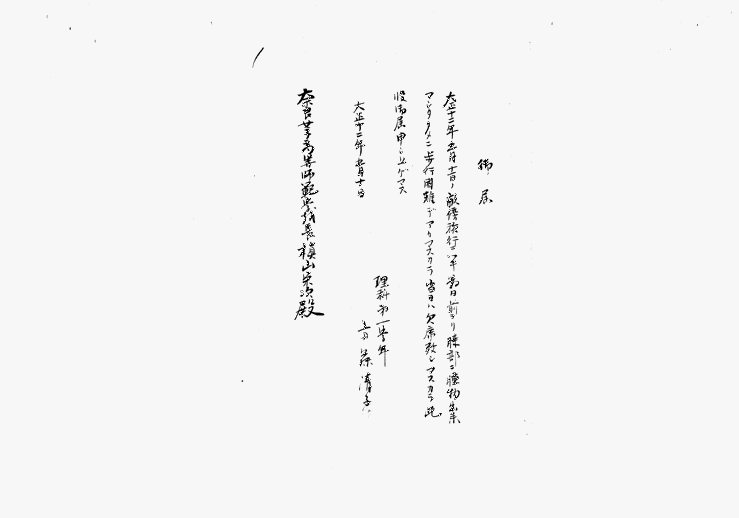 御届
大正十二年五月十一日ノ敵傍旅行ニハ半 前ヨリ腰部ニ腫物出来
マシタタメニ歩行困難デアリマスカラ当日ハ欠席致シマスカラ此
段御届申シ上ゲマス
大正十二年五月十日
理科第一学年
藤清子
奈良女子高等師範学校長槙山栄次殿